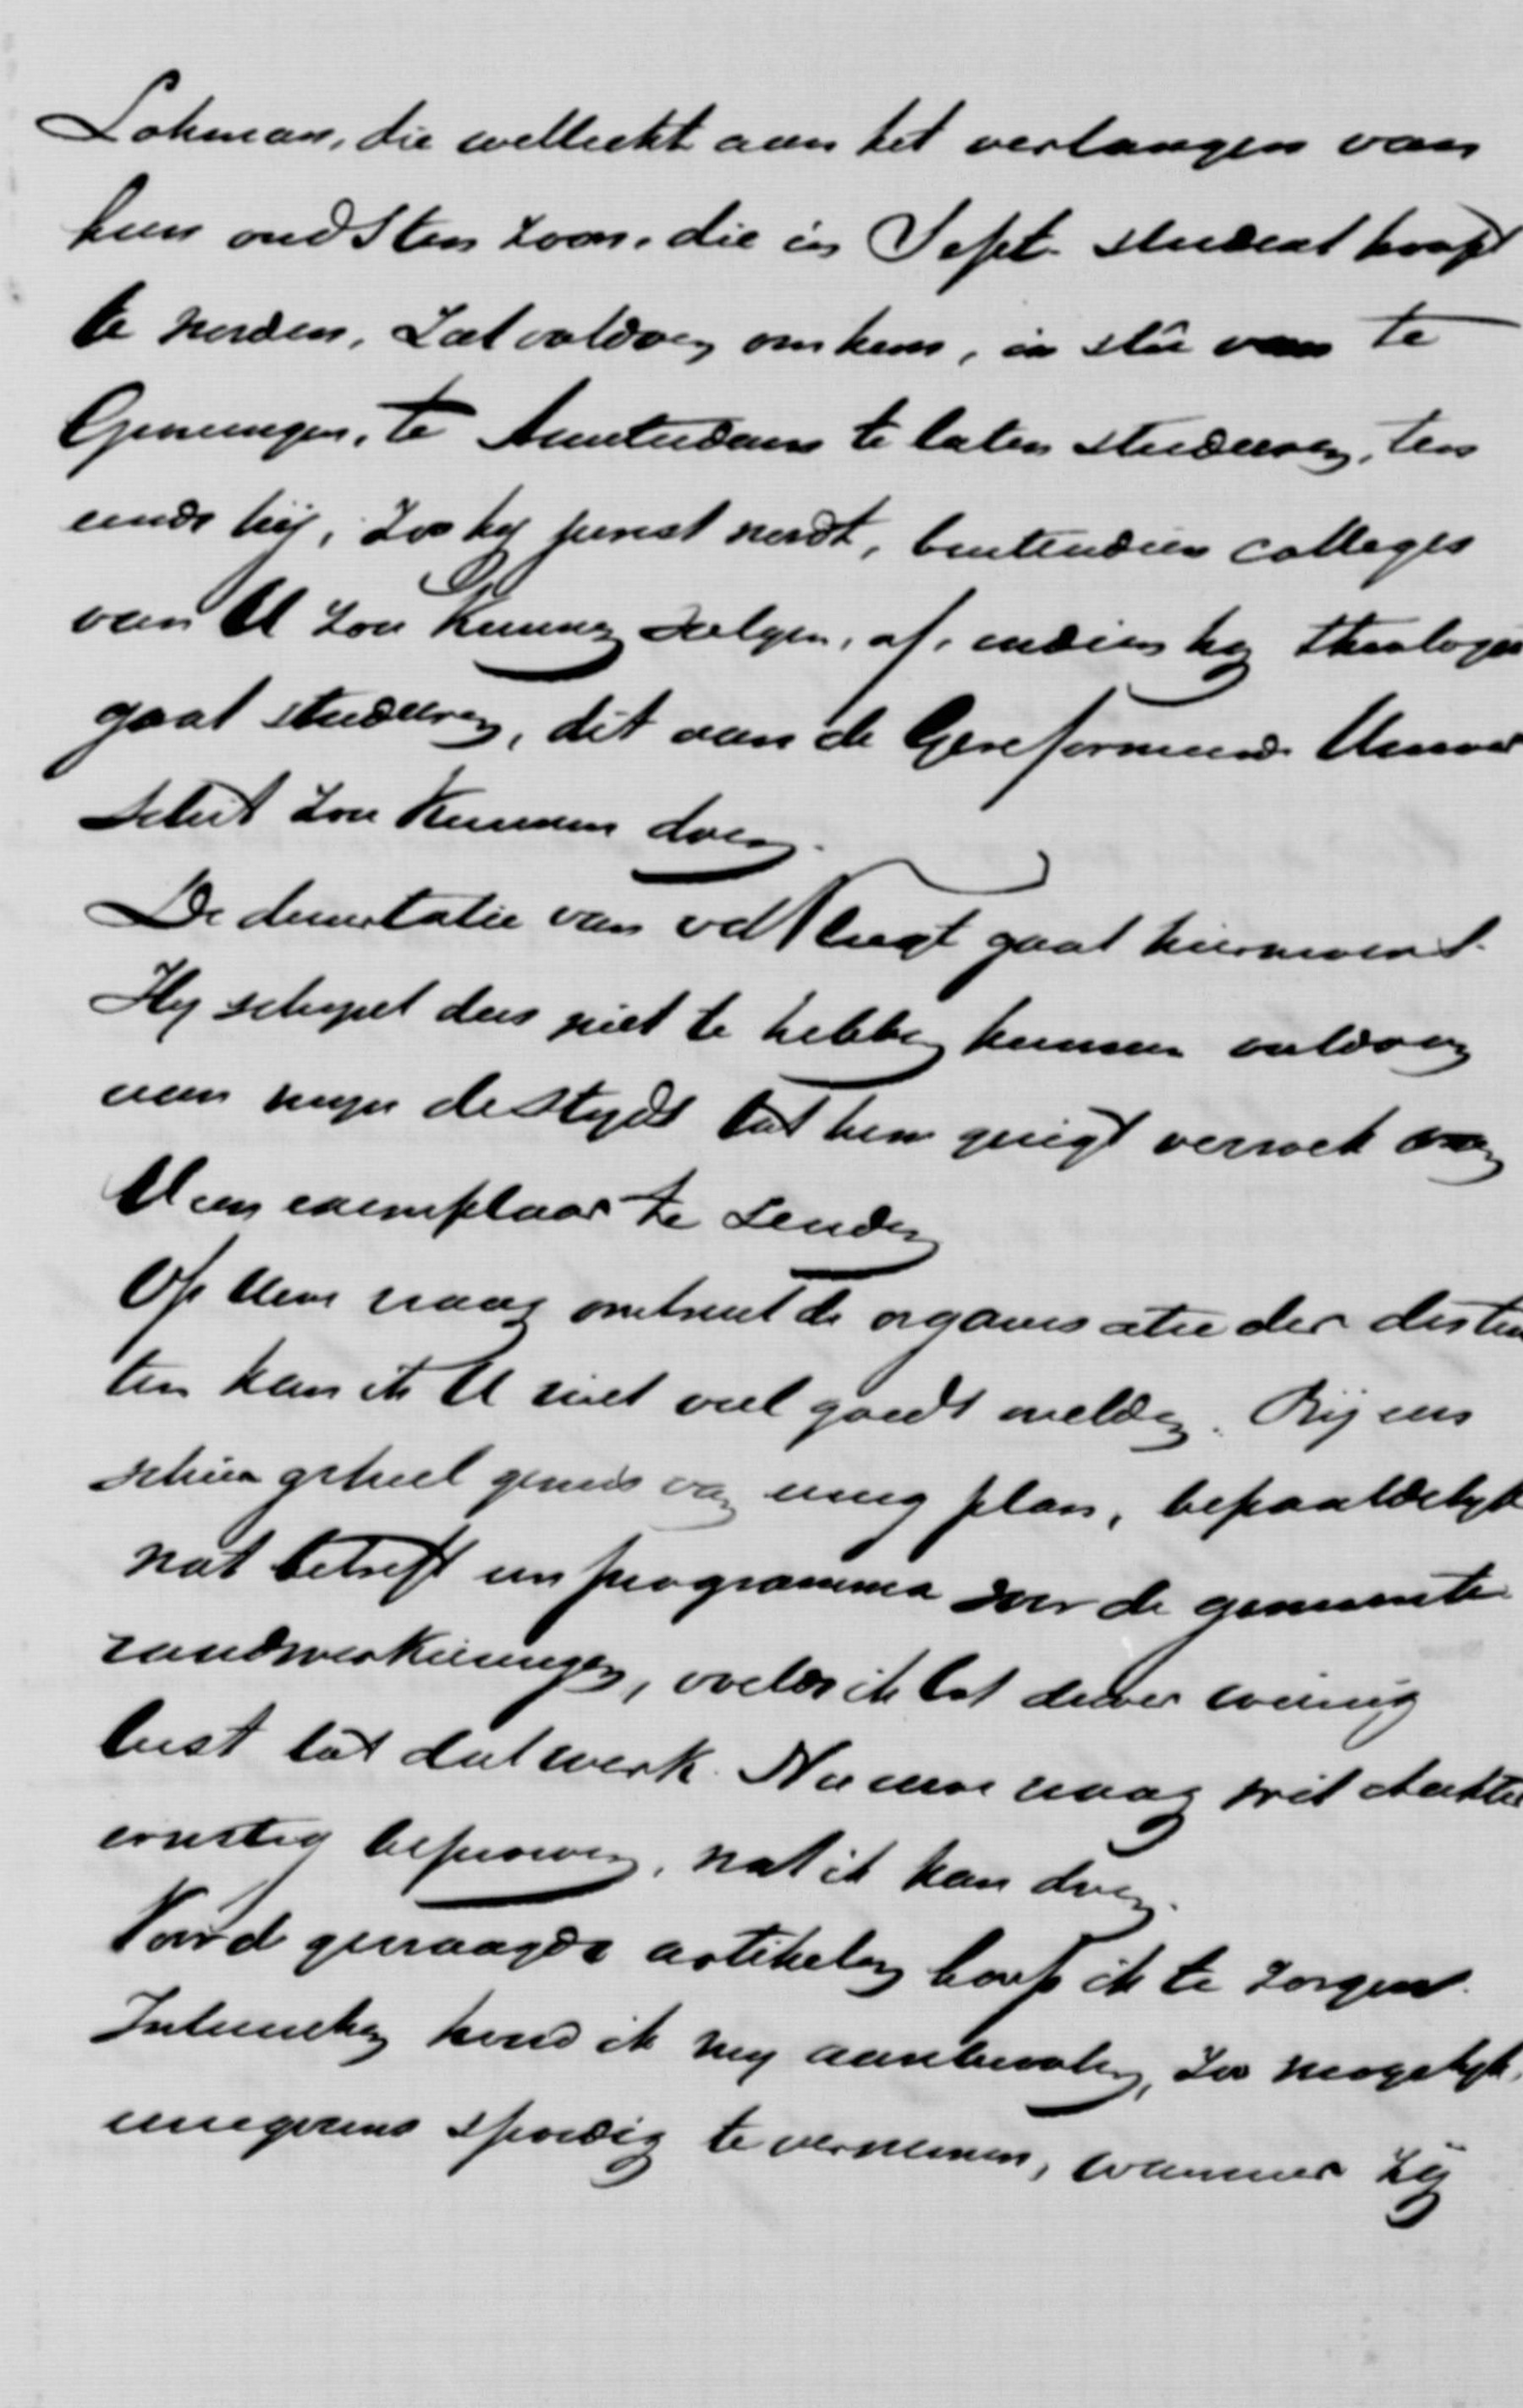 Lohman, die wellicht aan het verlangen van
hun oudsten zoon, die in Sept. student hoopt
te worden, zal voldoen om hem, in stee van te
Groningen, te Amsterdam te laten studeeren, ten
einde hij, zoo hij jurist wordt, bovendien colleges
van U zou kunnen volgen, of, indien hij theologie
gaat studeeren, dit aan de Gereformeerde Univer
siteit zou kunnen doen.
De dissertatie van vd Vlugt gaat hiernevens.
Hij schijnt dus niet te hebben kunnen voldoen
aan mijn destijds tot hem gerigt verzoek om
U een exemplaar te zenden
Op Uwe vraag omtrent de organisatie der distric
ten kan ik U niet veel goeds melden. Bij een
schier geheel gemis van eenig plan, bepaaldelijk
wat betreft een programma voor de gemeente
raadsverkiezingen, voelde ik tot dusver weinig
lust tot dat werk. Na uwe vraag wil ik echter
ernstig beproeven, wat ik kan doen.
Voor de gevraagde artikelen hoop ik te zorgen.
Intusschen houd ik mij aanbevolen, zoo mogelijk,
eenigszins spoedig te vernemen, wanneer zij